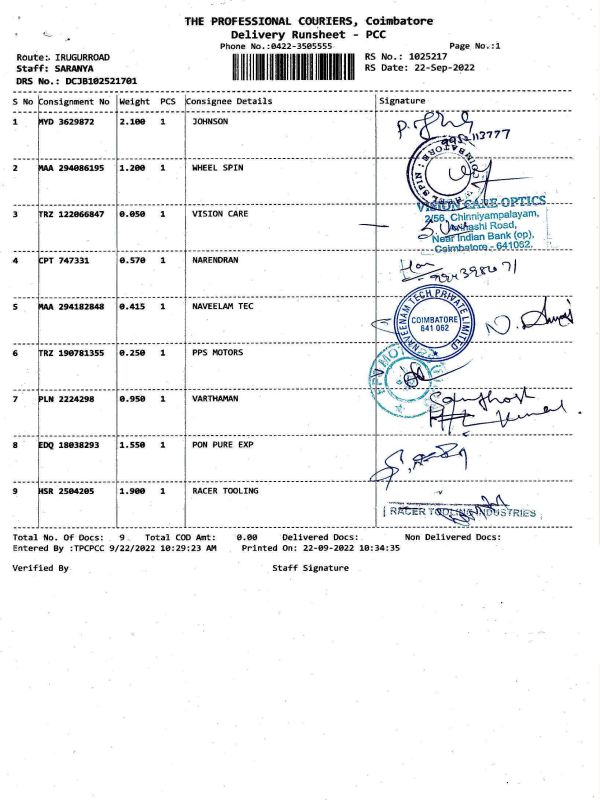 THE PROFESSIONAL COURIERS, Coimbatore
Delivery Runsheet - PCC
Phone No.:0422-3505555
Page No.:1
Route: IRUGURROAD
RS No.: 1025217
Staff: SARANYA
RS Date: 22-Sep-2022
DRS No.: DCJB102521701
S No Consignment No Weight PCS Consignee Details Signature
1 MYD 3629872 2.100 1 JOHNSON
2 MAA 294086195 1.200 1 WHEEL SPIN
SPIN : COIMBATORE
3 TRZ 122066847 0.050 1 VISION CARE
VISION CARE OPTICS
2/56, Chinniyampalayam,
Road,
Near Indian Bank (op),
Coimbatore - 641062.
4 CPT 747331 0.570 1 NARENDRAN
5 MAA 294182848 0.415 1 NAVEELAM TEC
NAVEENAM TECH PRIVATE LIMITED
COIMBATORE
641 062
6 TRZ 190781355 0.250 1 PPS MOTORS
7 PLN 2224298 0.950 1 VARTHAMAN
8 EDQ 18038293 1.550 1 PON PURE EXP
9 HSR 2504205 1.900 1 RACER TOOLING
RACER TOOLING INDUSTRIES
Total No. Of Docs: 9 Total COD Amt: 0.00 Delivered Docs: Non Delivered Docs:
Entered By :TPCPCC 9/22/2022 10:29:23 AM Printed On: 22-09-2022 10:34:35
Verified By Staff Signature